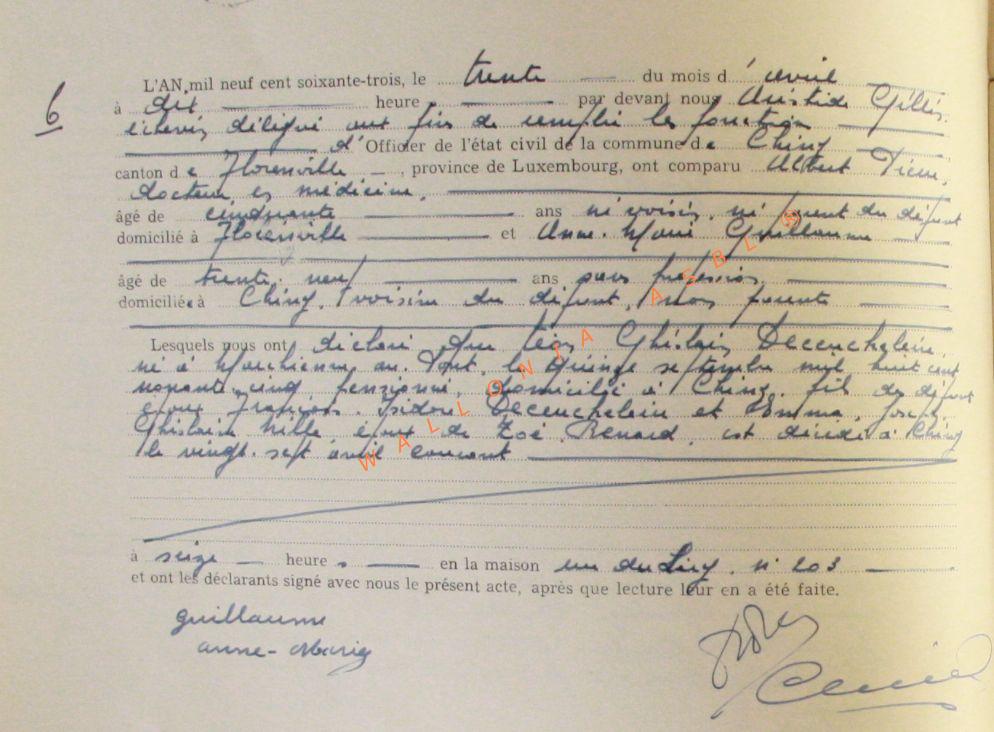 6
L'AN mil neuf cent soixante-trois, le trente du mois d'avril
à dix heures par devant nous Aristide Gillis,
échevin délégué aux fins de remplir les fonctions
d'Officier de l'état civil de la commune de Chiny
canton de Florenville, province de Luxembourg, ont comparu Albert
docteur es médecine,
âgé de cinquante ans ni voisin, ni parent du défunt
domicilié à Florenville et Anne-Marie Guillaume
âgé de trente neuf ans sans profession
domiciliée à Chiny, voisine du défunt, non parente
Lesquels nous ont déclaré que Léon Ghislain Deceuchelein,
né à Marchienne au Pont, le quinze septembre mil huit cent
nonante cinq pensionné, domicilié à Chiny, fils des défunts
époux François Isidore Deceuchelein et Emma, Josep
Ghislain Mille, époux de Zoé Renard, est décédé à Chiny
le vingt-sept avril courant
à seize heures en la maison rue du n° 203
et ont les déclarants signé avec nous le présent acte, après que lecture leur en a été faite.
Guillaume
Anne-Marie
WALLONIA ASBL